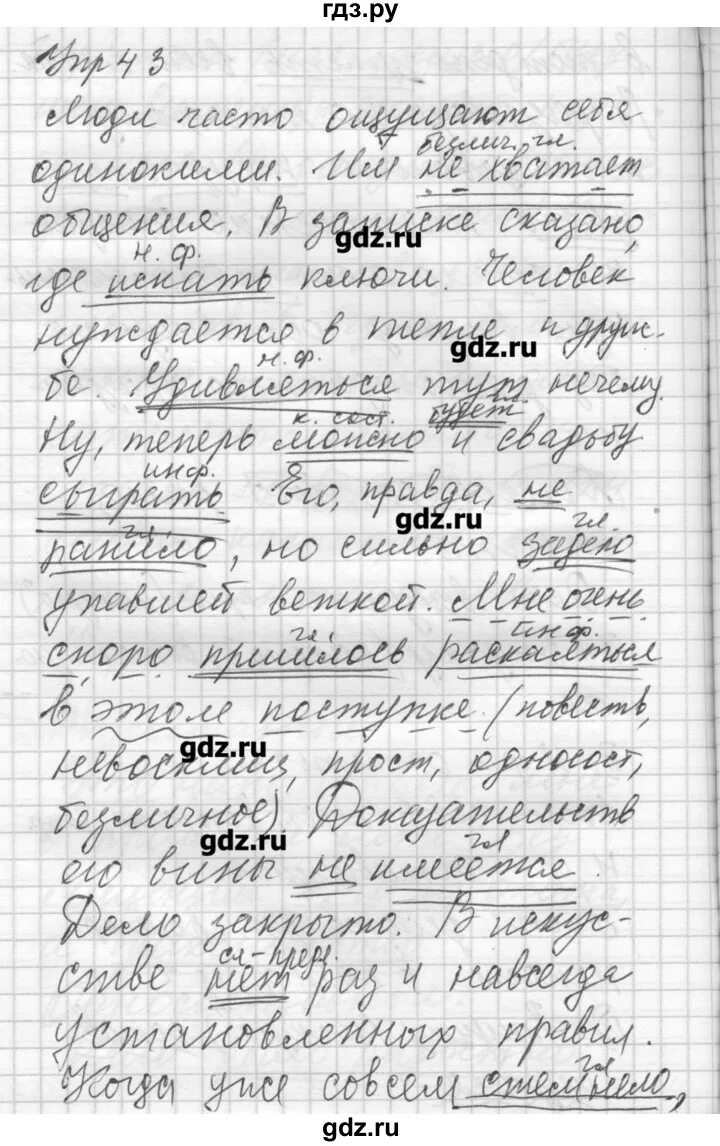 гдз.ру
Упр 43
Люди часто ощущают себя
безлич. гл.
одинокими. Им не хватает
общения. В записке сказано,
gdz.ru
н. ф.
где искать ключи. Человек
нуждается в тепле и друж-
gdz.ru
н. ф.
бе. Удивляться тут нечему.
к. сост. будет гл.
Ну, теперь можно и свадьбу
инф.
сыграть. Его, правда, не
gdz.ru
гл. гл.
ранило, но сильно задело
упавшей веткой. Мне очень
гл инф.
скоро пришлось раскаяться
в этом поступке. (повеств,
gdz.ru
невосклиц, прост, односост,
безличное) Доказательств
gdz.ru
гл
его вины не имеется.
Дело закрыто. В искус-
сл-пред.
стве нет раз и навсегда
установленных правил.
гл
Когда уже совсем стемнело,
gdz.ru